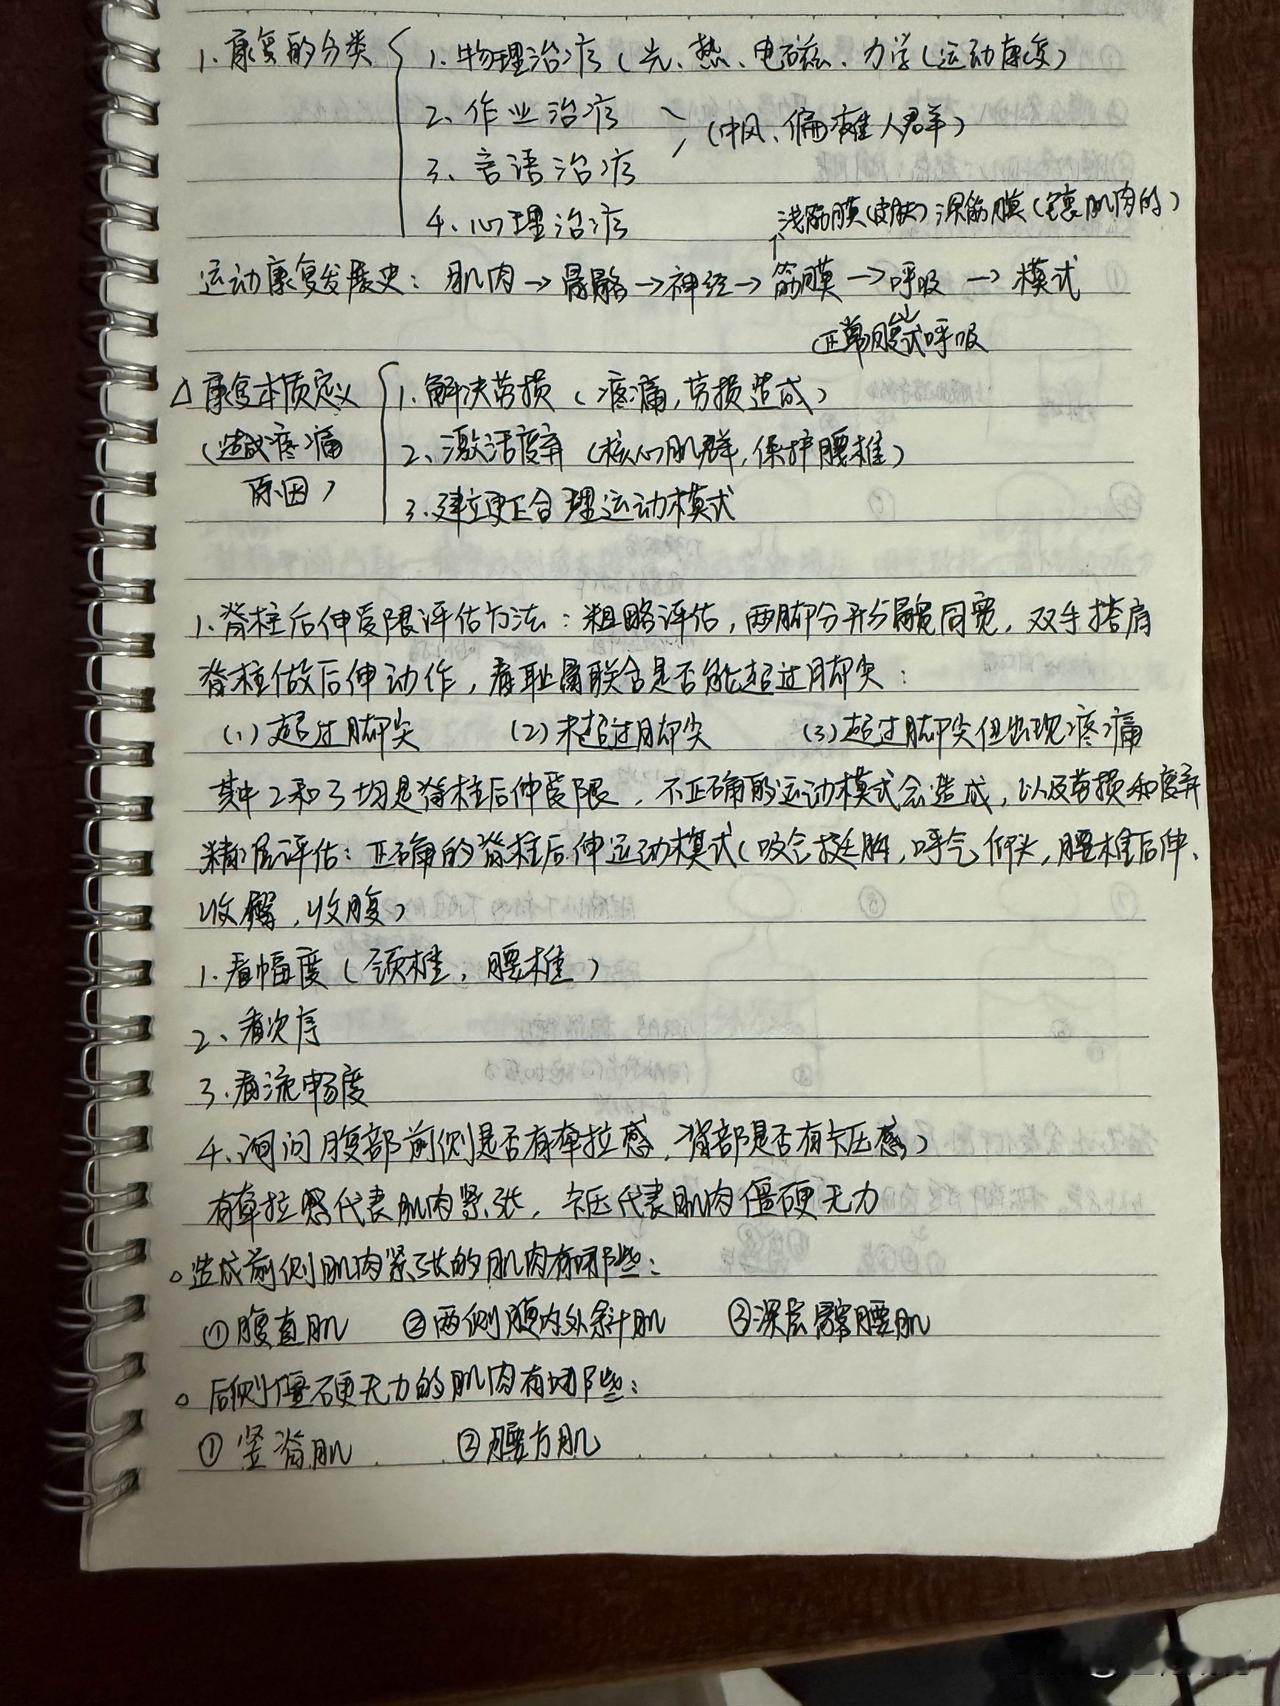 1. 康复的分类 { 1. 物理治疗 (光、热、电磁、力学(运动康复)
2. 作业治疗
(中风、偏瘫人群)
3. 言语治疗
4. 心理治疗
浅筋膜(皮肤) 深筋膜(包裹肌肉的)
运动康复发展史: 肌肉→骨骼→神经→筋膜→呼吸→模式
(正常腹式呼吸
△ 康复本质定义 { 1. 解决劳损 (疼痛,劳损造成)
(造成疼痛 2. 激活废弃 (核心肌群,保护腰椎)
原因) 3. 建立更正合理运动模式
1. 脊柱后伸受限评估方法: 粗略评估, 两脚分开与髋同宽, 双手搭肩
脊柱做后伸动作, 看耻骨联合是否能超过脚尖:
(1) 超过脚尖 (2) 未超过脚尖 (3) 超过脚尖但出现疼痛
其中2和3均是脊柱后伸受限, 不正确的运动模式会造成, 以及劳损和废弃
精准评估: 正确的脊柱后伸运动模式(吸气挺胸, 呼气仰头, 腰椎后伸、
收臀, 收腹)
1. 看幅度 (颈椎, 腰椎)
2. 看次序
3. 看流畅度
4. 询问腹部前侧是否有牵拉感, 背部是否有卡压感)
有牵拉感代表肌肉紧张, 卡压代表肌肉僵硬无力
○ 造成前侧肌肉紧张的肌肉有哪些:
① 腹直肌 ② 两侧腹内外斜肌 ③ 深层髂腰肌
○ 后侧僵硬无力的肌肉有哪些:
① 竖脊肌 ② 腰方肌